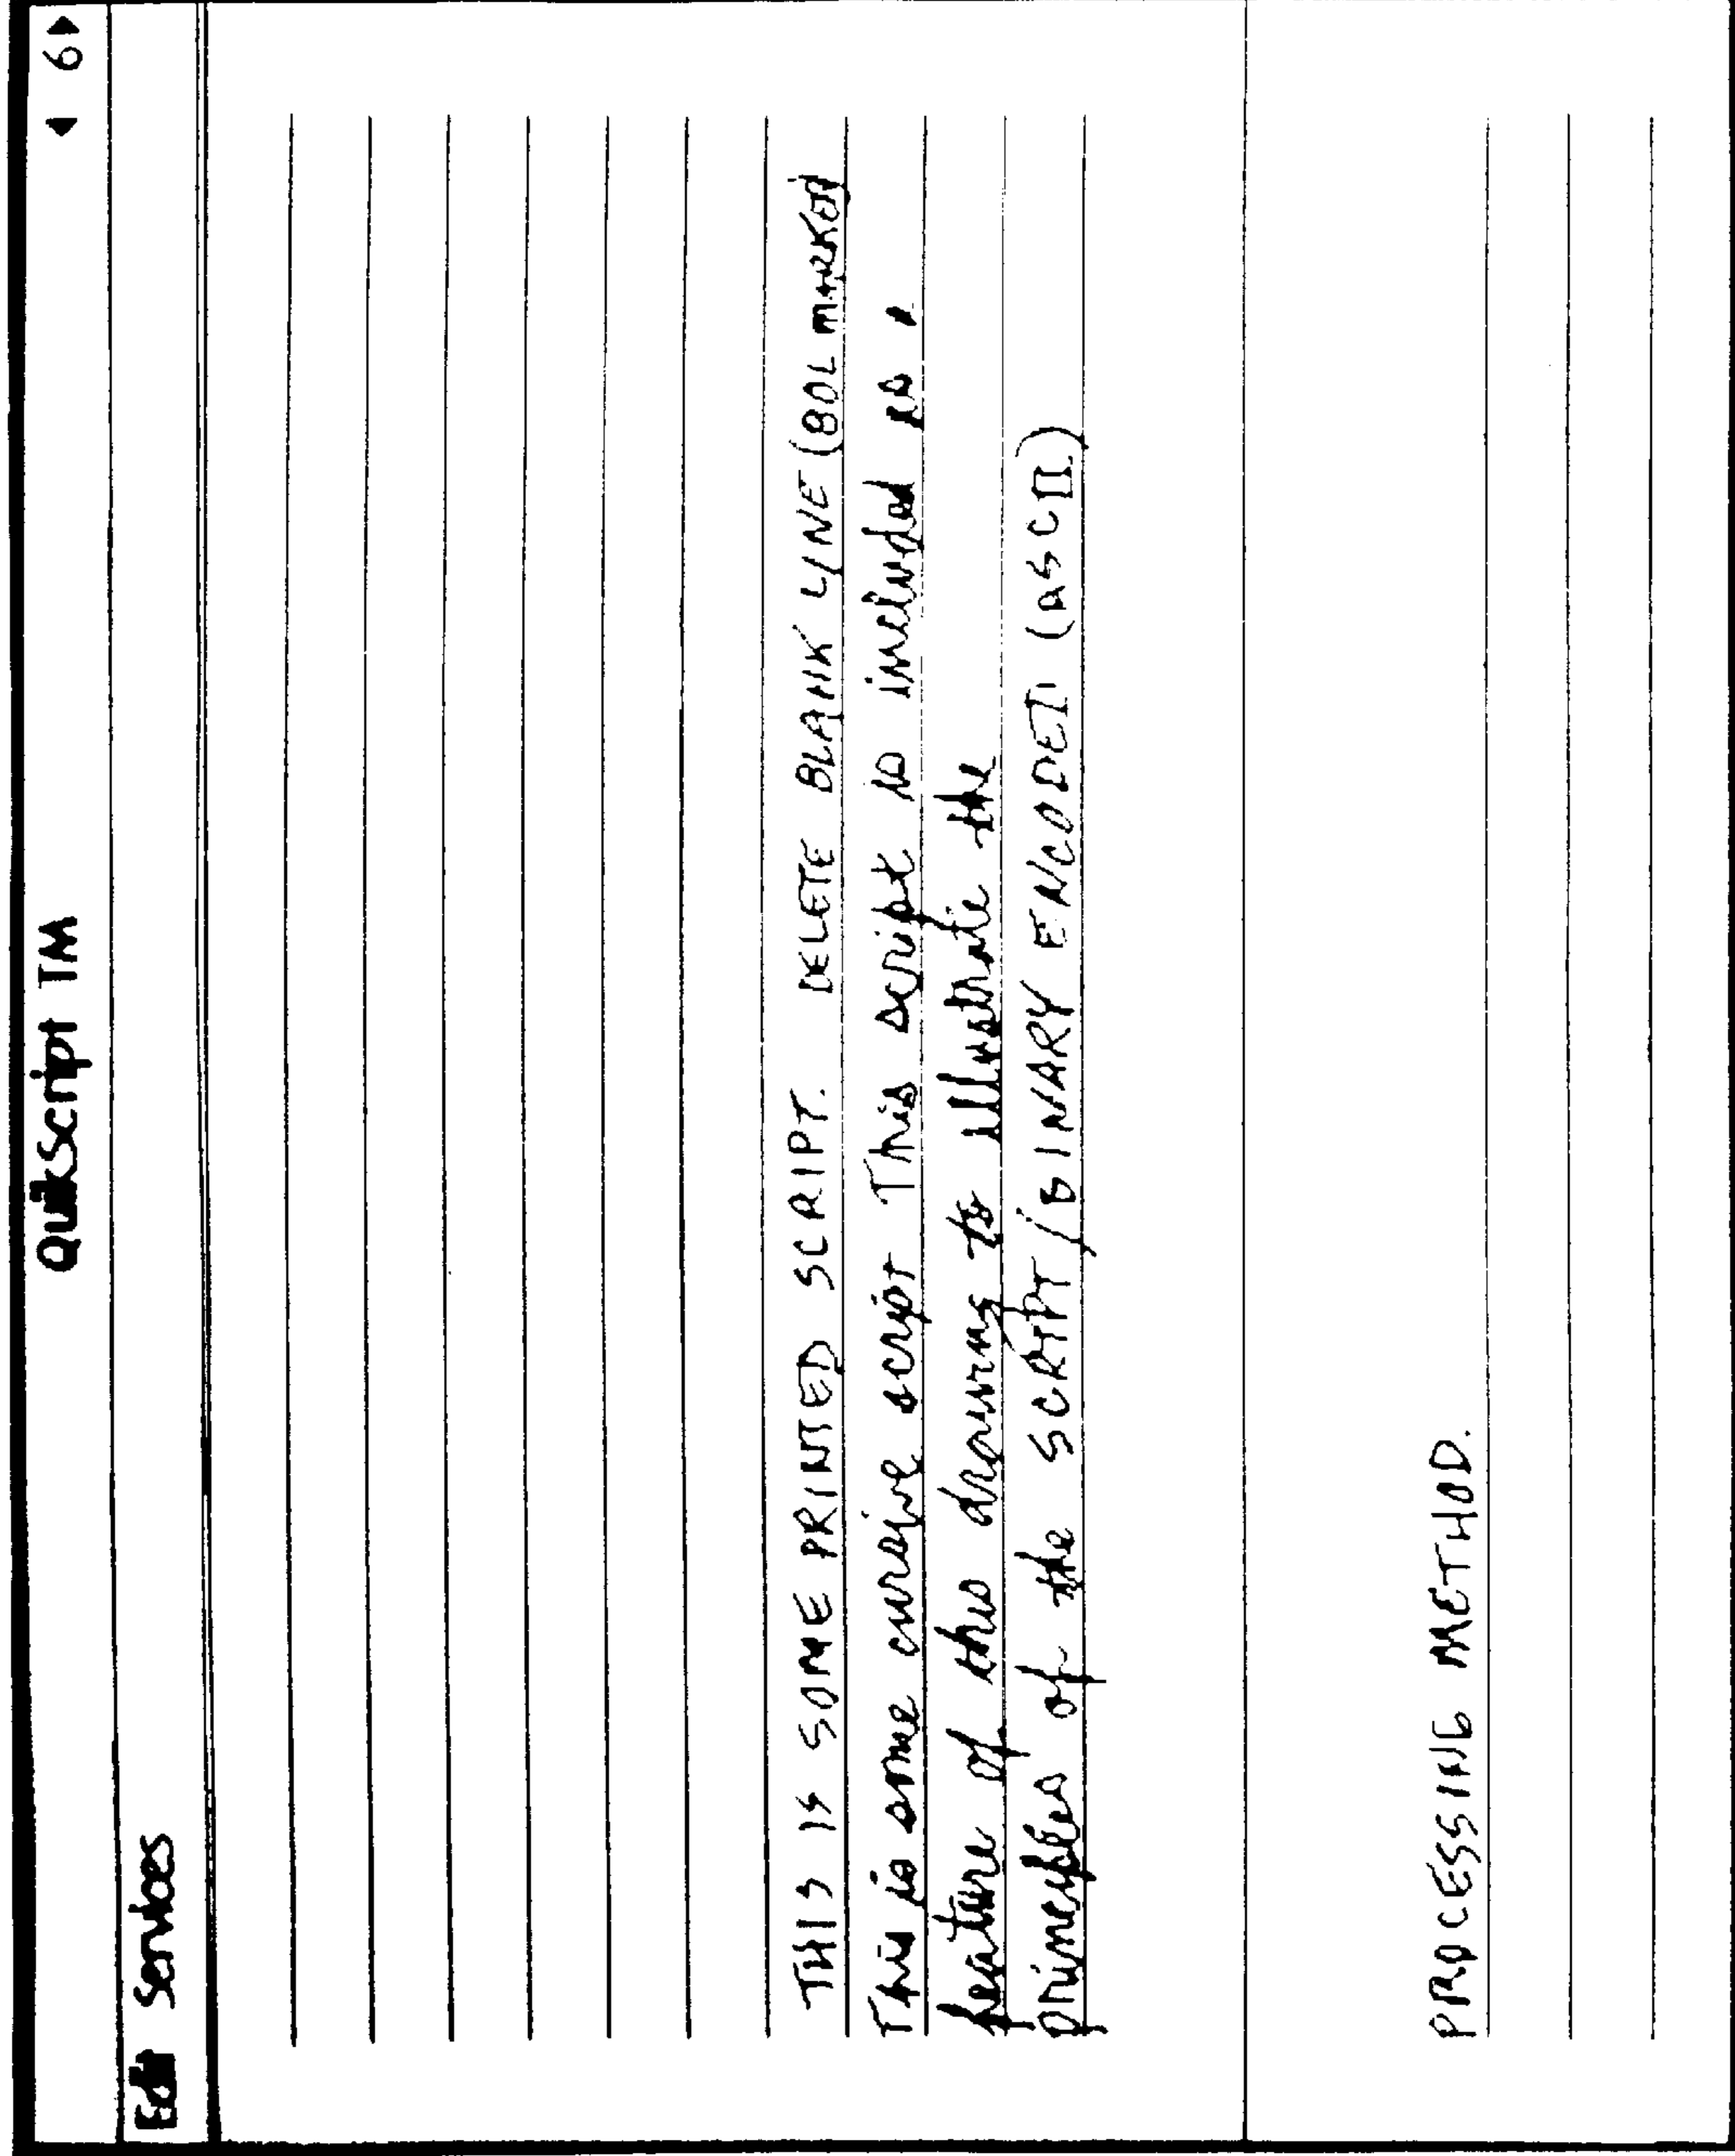 QuikScript TM ◀ 6 ▶
Edit Services
THIS IS SOME PRINTED SCRIPT. DELETE BLANK LINE (BOL marked
This is some cursive script This script is included as a
feature of this drawing to illustrate the
principles of the SCRIPT/BINARY ENCODED (ASCII)
PROCESSING METHOD.